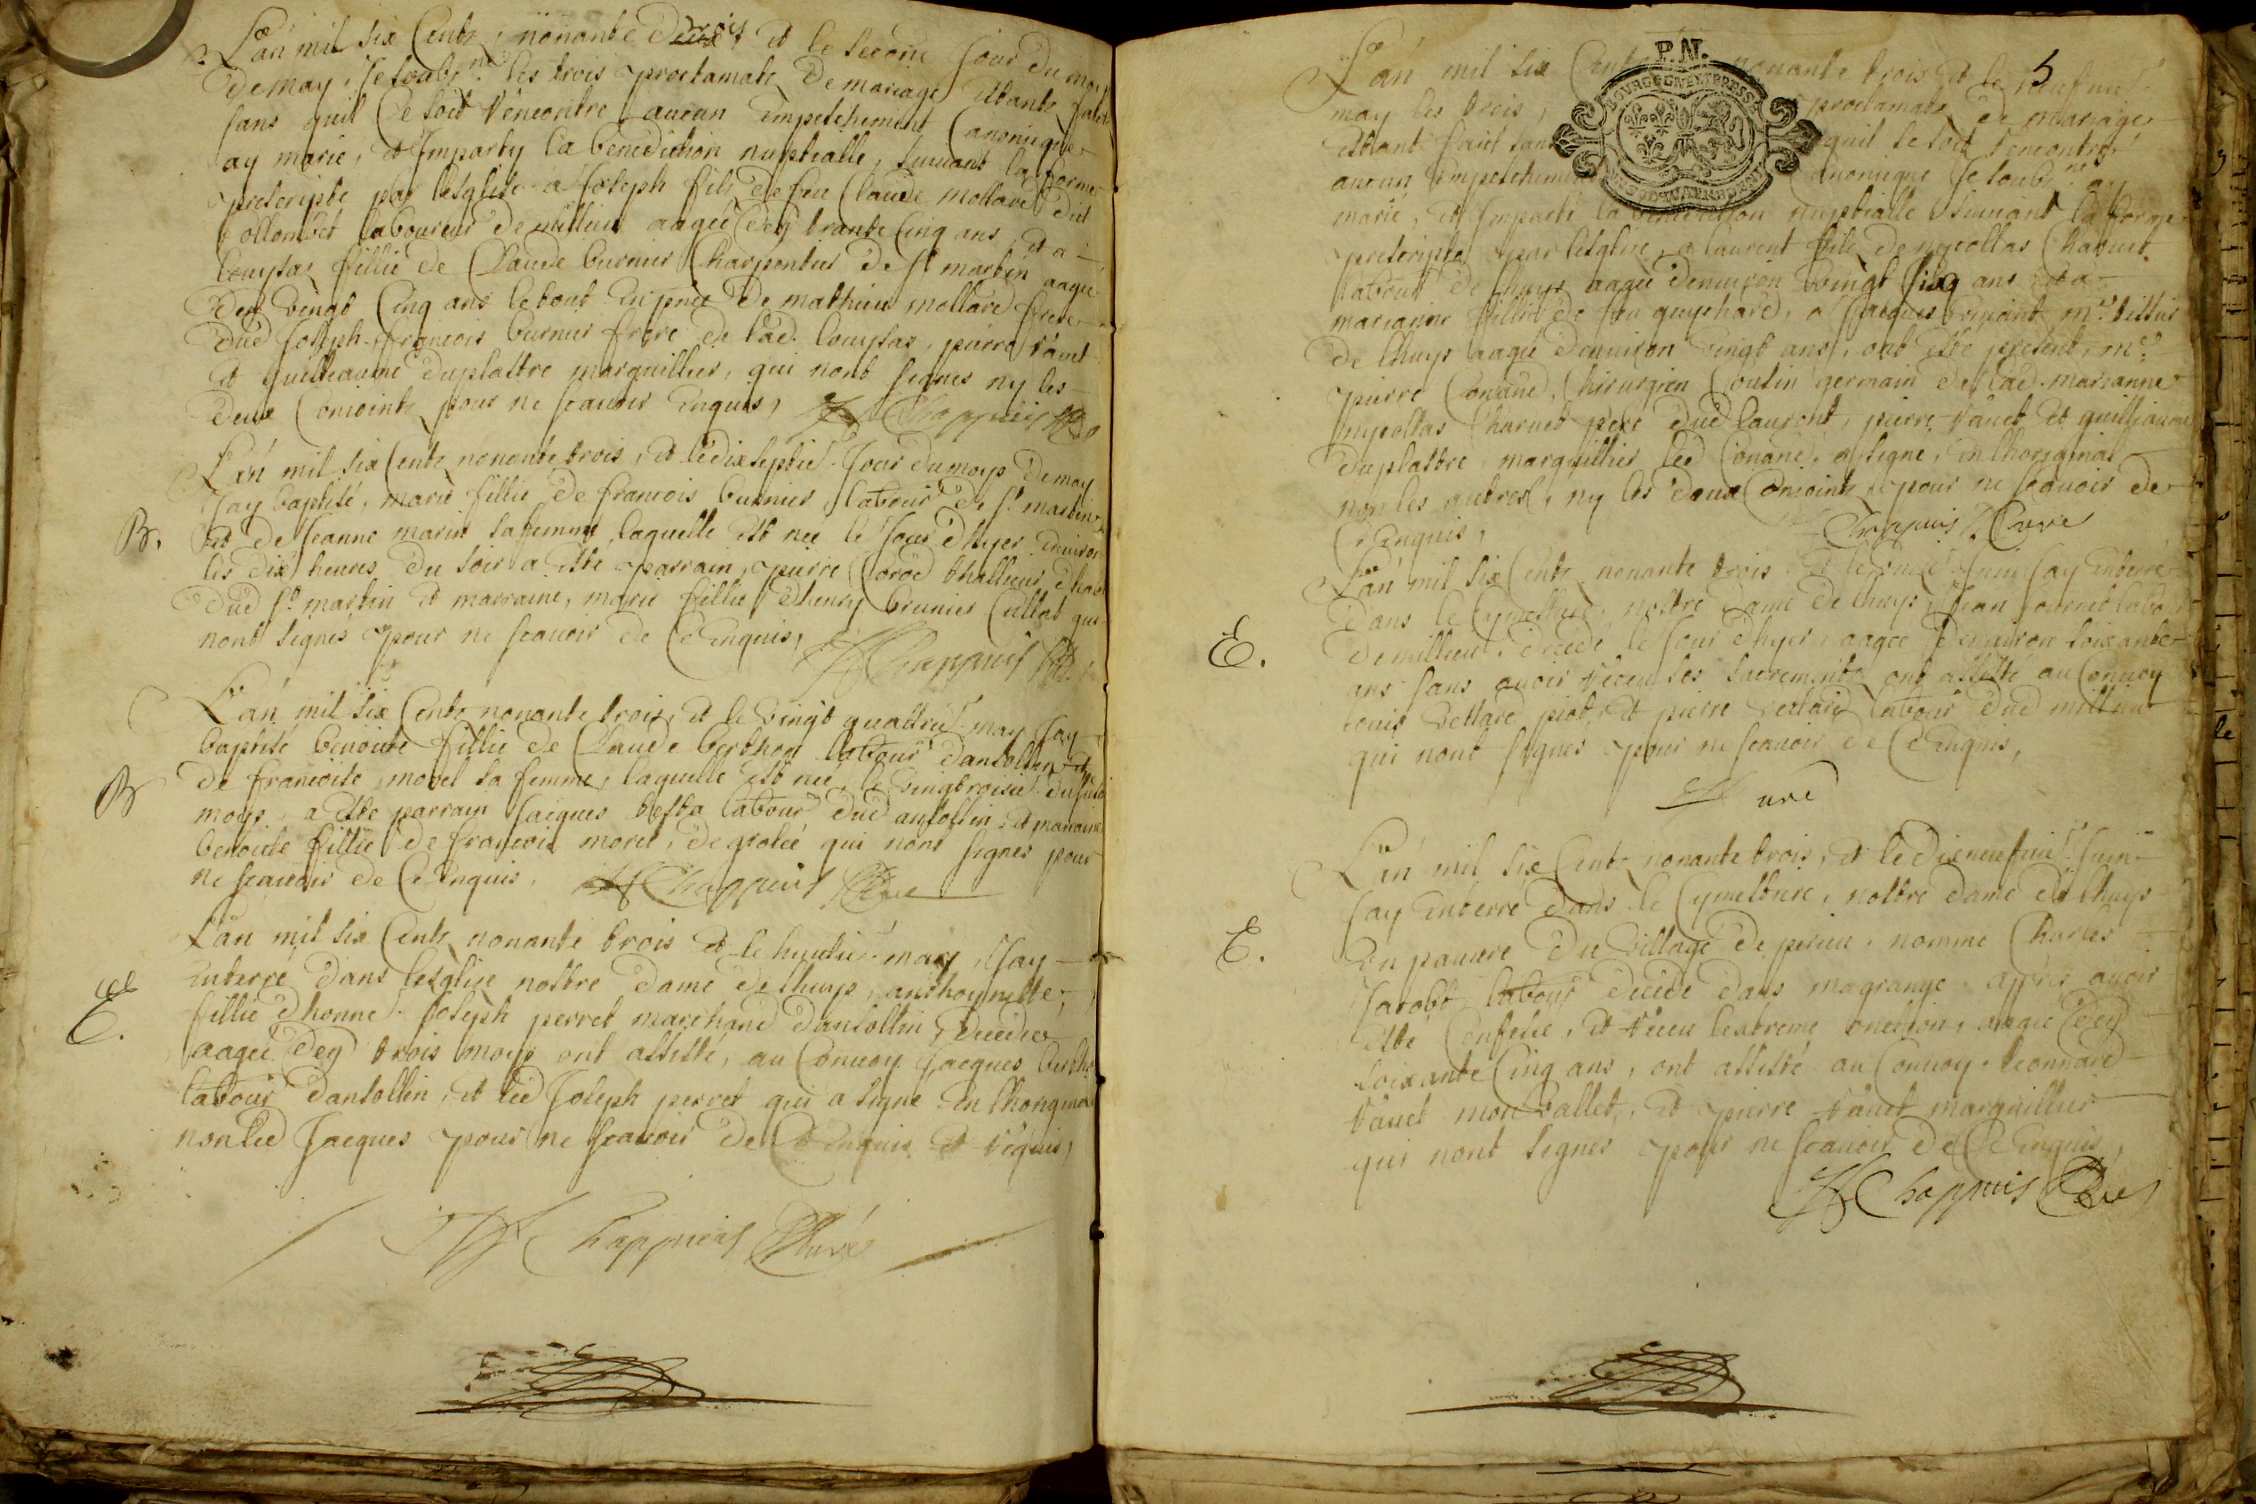 Lan mil six Cents, nonante trois, et le second Jour du moys
de may, Je soubné les trois proclamats de mariage estants faits
sans quil se soit rencontre aucun empeschement Canonique
ay marie, et Imparty la benediction nuptialle, suivant la forme
prescripte par lesglise a Joseph fils de feu Claude mollard dit
Collombet laboureur de millieu aagée dey trante Cinq ans, et a
Louysas fillie de Claude burnier Charpentier de St martin aagee
den vingt Cinq ans le tout en pnce de mathieu mollard frere
dud Joseph, francois burnier frere de lad. Louysas, pierre
et guilleaume duplattre marguillier, qui nont signes ny les
deux Conjoints pour ne scavoir enquis, Chappuis
Lan mil six Cents nonante trois, et le dixseptie. Jour du moys de may
Jay baptisé, marie fillie de francois burnier, labour de St martin
et de Jeanne marin sa femme, laquelle est nee le Jour dhyer environ
les dix heures du soir a esté parrain, pierre
B.
dud St martin et marraine, marie fillie dhenry brunier Cullat qui
nont signés pour ne scavoir de Ce Enquis, Chappuis
Lan mil six Cents nonante trois, et le vingt quattrie. may Jay
baptisé benoite fillie de Claude berthet labour dansollin et
de francoise morel sa femme, laquelle est nee, le vingtroisie. dud
B
moys, a este parrain Jacques labour dud ansollin et maraine
benoite fillie de francois morel, de grolée qui nont signes pour
ne scavoir de Ce Enquis. Chappuis Curé
Lan mil six Cents nonante trois et le huitie. may, Jay
enterré dans lesglise nostre dame de lhuys, anthoynette
E.
fillie dhonne. Joseph perret marchand dansollin, decedee
aagee dey trois moys ont assisté, au Convoy Jacques
labour dansollin, et led Joseph perret qui a signé en lhoriginal
non led Jacques pour ne scavoir de Ce Enquis et requis,
Chappuis Curé
5
Lan mil six Cents nonante trois et le
may les trois proclamats de mariage
estant fait sans quil se soit rencontré
aucun empeschement Canonique Je soubné ay
marié, et Imparti la benediction nuptialle suivant la forme
prescripte par lesglise, a laurent fils de nycollas Charvet
labour de lhuys aagée denviron vingt Cinq ans et a
marianne fillie de feu guychard, a Jacques Conand mre tissier
de lhuys aagée denviron vingt ans, ont esté present, mre
pierre Conand, Chirurgien Cousin germain de lad marianne
nycollas Charvet pere dud laurent, pierre et guilliaume
duplattre, marguillier led Conand, a signé, en lhoriginal
non les autres, ny les deux Conjoints pour ne scavoir de
Ce Enquis, Chappuis Curé
Lan mil six Cents nonante trois et le Juin Jay enterré
dans le Cymettiere, nostre dame de lhuys, Jean labour
E.
de millieu, decedé le Jour dhyer, aagee denviron soixante
ans sans avoir receu les sacrements, ont assisté au Convoy
louis vettard piot, et pierre vettard labour dud millieu
qui nont signes pour ne scavoir de Ce Enquis,
Curé
Lan mil six Cents nonante trois, et le dixneufvie. Juin
Jay enterré dans le Cymettiere, nostre dame de lhuys
E.
un pauvre du village de perieu, nomme Charles
Jacobt labour decedé dans magrange apres avoir
esté Confessé, et receu lextreme onction, aagee dey
soixante Cinq ans, ont assisté au Convoy leonnard
mon vallet, et pierre marguillier
qui nont signes pour ne scavoir de Ce Enquis,
Chappuis Curé
P.N.